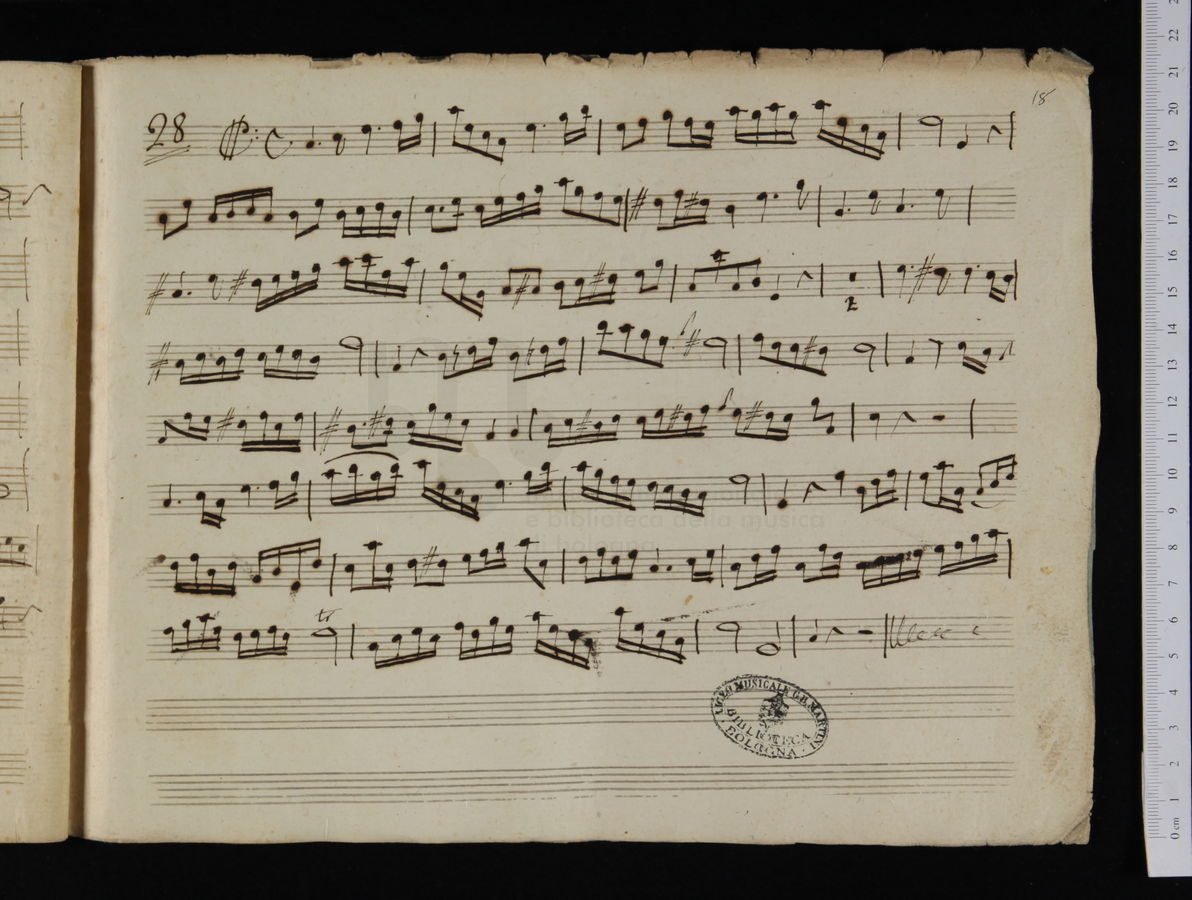 18
28
tr
e biblioteca della musica
di bologna
LICEO MUSICALE G.B. MARTINI
BIBLIOTECA
BOLOGNA
22
21
20
19
18
17
16
15
14
13
12
11
10
9
8
7
6
5
4
3
2
1
0 cm